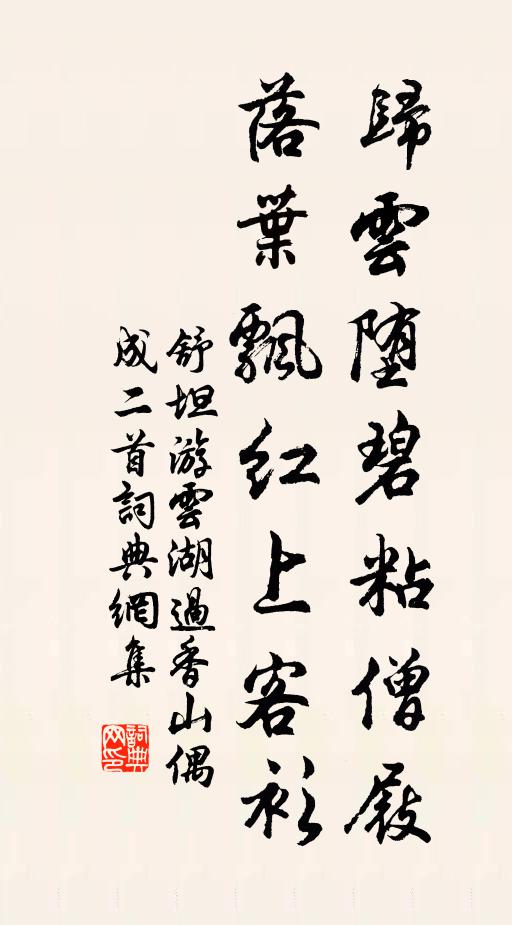 歸雲堕碧粘僧屐
落葉飄紅上客衫
舒坦游雲湖過香山偶
成二首詞典網集
詞典
网印